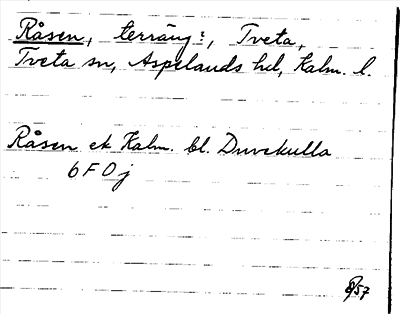 Råsen, terräng?, Tveta,
Tveta sn, Aspelands hd, Kalm. l.
Råsen ek Kalm. bl. Duvekulla
6 F 0 j
57